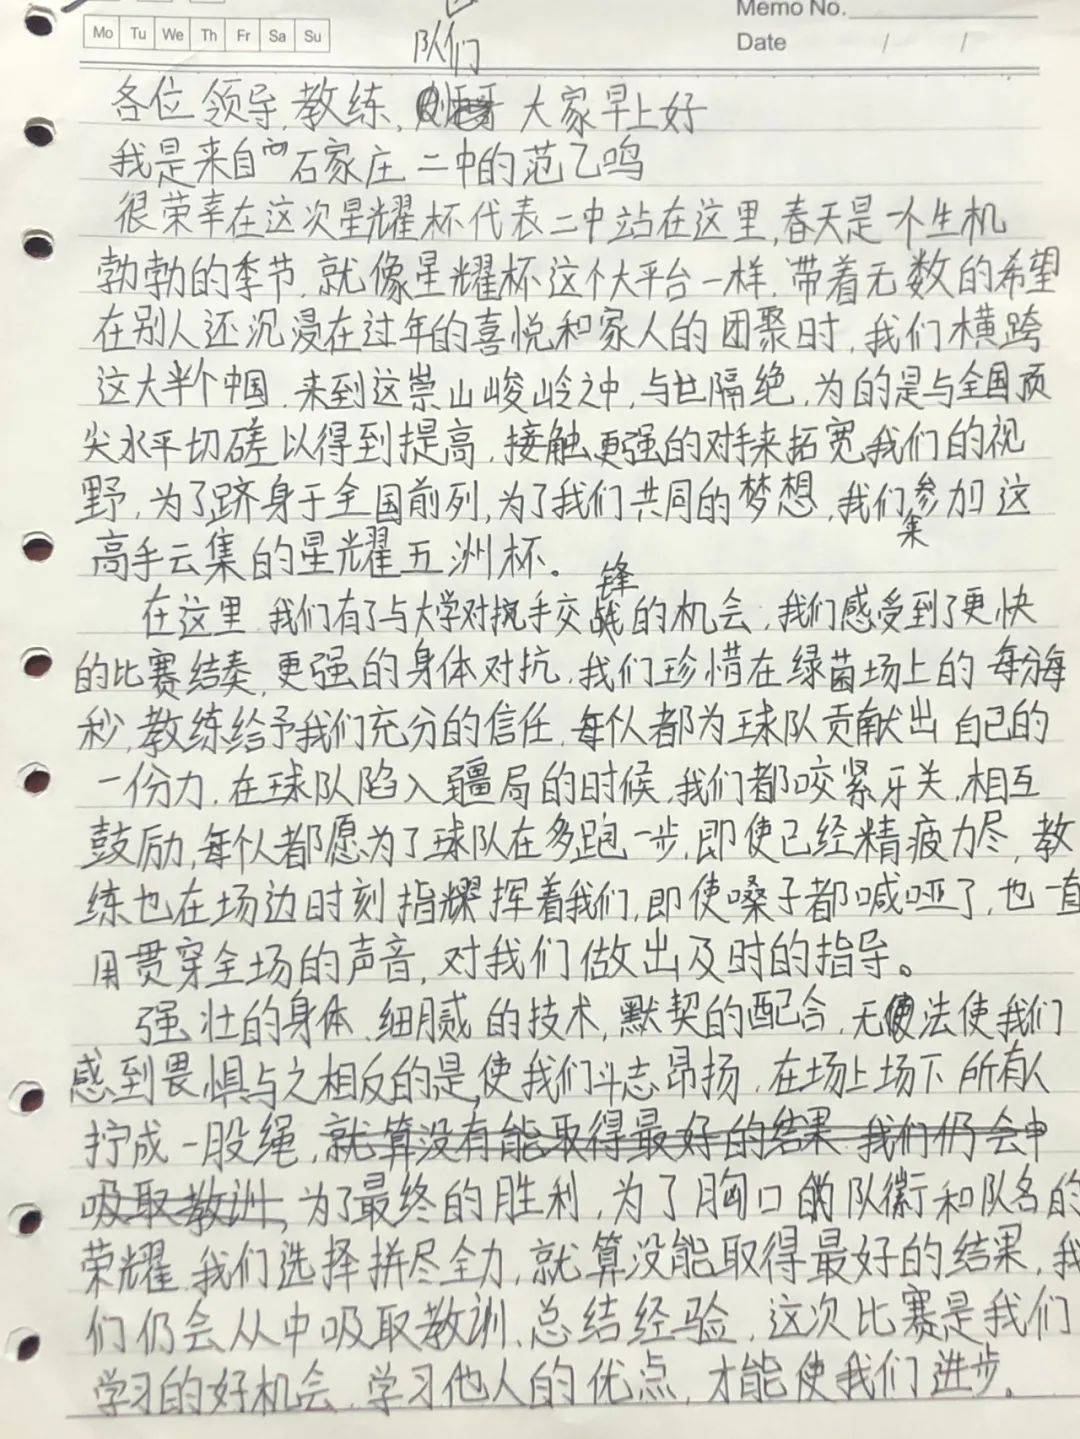 Memo No.
Mo Tu We Th Fr Sa Su
Date / /
队们
各位领导,教练, 大家早上好
我是来自 石家庄二中的范乙鸣
很荣幸在这次星耀杯代表二中站在这里,春天是一个生机
勃勃的季节,就像星耀杯这个大平台一样,带着无数的希望
在别人还沉浸在过年的喜悦和家人的团聚时,我们横跨
这大半个中国,来到这崇山峻岭之中,与世隔绝,为的是与全国顶
尖水平切磋以得到提高,接触更强的对手来拓宽我们的视
野,为了跻身于全国前列,为了我们共同的梦想,我们参加这
来
高手云集的星耀五洲杯。
锋
在这里,我们有了与大学对抗手交战的机会,我们感受到了更快
的比赛结奏,更强的身体对抗,我们珍惜在绿茵场上的每分每
秒,教练给予我们充分的信任,每个人都为球队贡献出自己的
一份力,在球队陷入疆局的时候,我们都咬紧牙关,相互
鼓励,每个人都愿为了球队在多跑一步,即使已经精疲力尽,教
练也在场边时刻指耀挥着我们,即使嗓子都喊哑了,也一直
用贯穿全场的声音,对我们做出及时的指导。
强壮的身体,细腻的技术,默契的配合,无法使我们
感到畏惧与之相反的是,使我们斗志昂扬,在场上场下所有人
拧成一股绳,就算没有能取得最好的结果 我们仍会中
吸取教训,为了最终的胜利,为了胸口的队徽和队名的
荣耀,我们选择拼尽全力,就算没能取得最好的结果,我
们仍会从中吸取教训,总结经验,这次比赛是我们
学习的好机会,学习他人的优点,才能使我们进步。